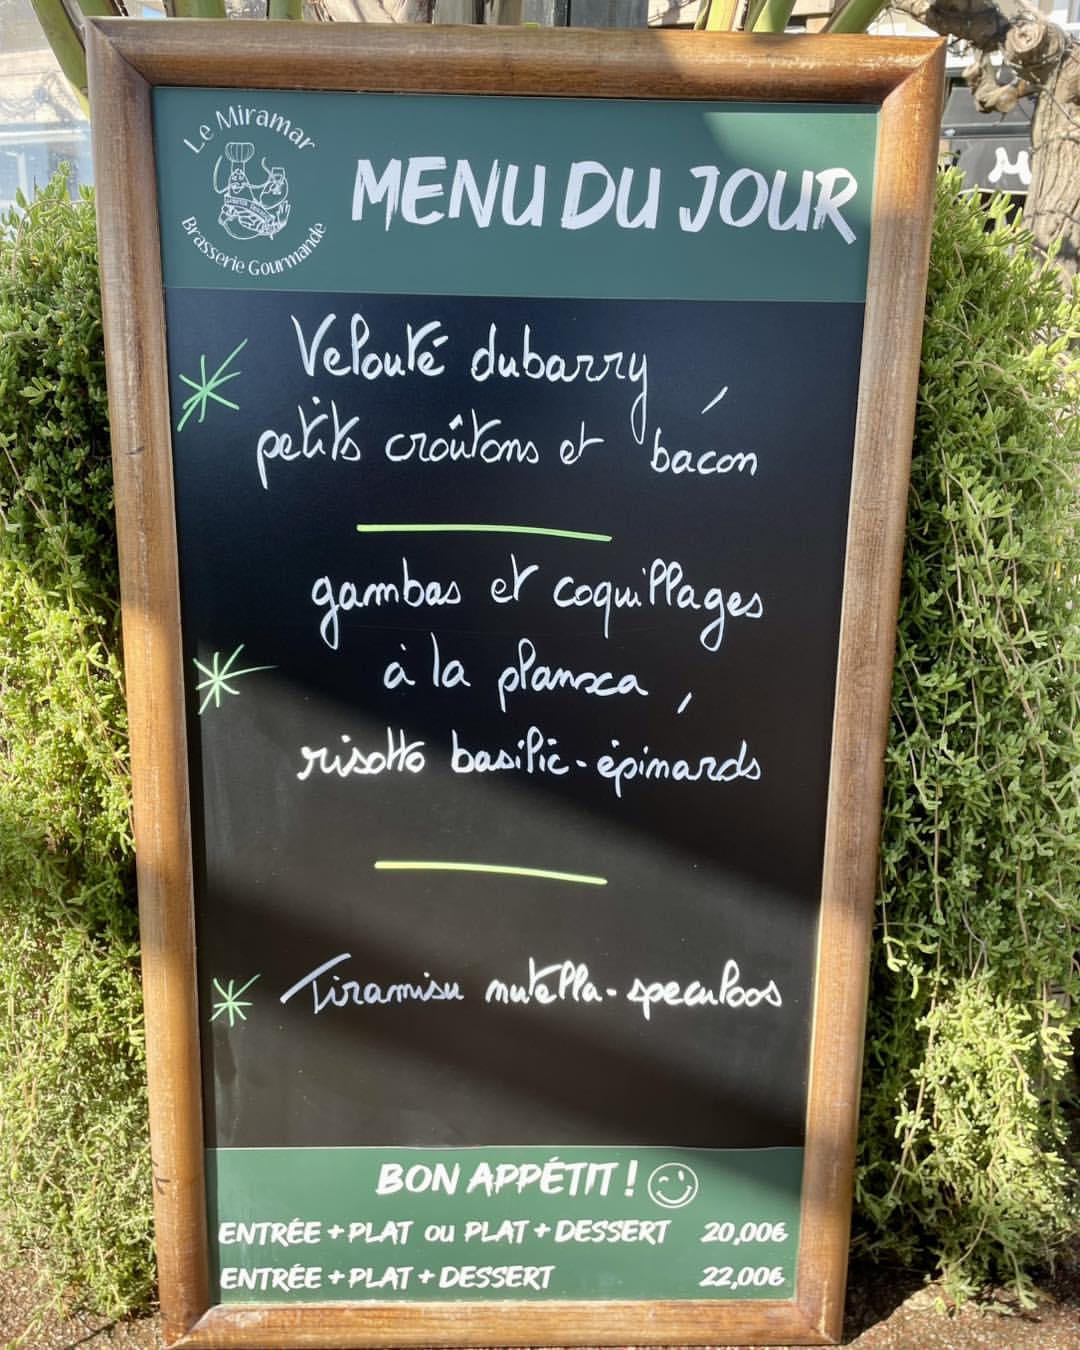 Le Miramar
Brasserie Gourmande
MENU DU JOUR
Velouté dubarry,
petits croûtons et bacon
gambas et coquillages
à la planxa,
risotto basilic-épinards
Tiramisu nutella-speculoos
BON APPÉTIT !
ENTRÉE + PLAT OU PLAT + DESSERT 20,00€
ENTRÉE + PLAT + DESSERT 22,00€